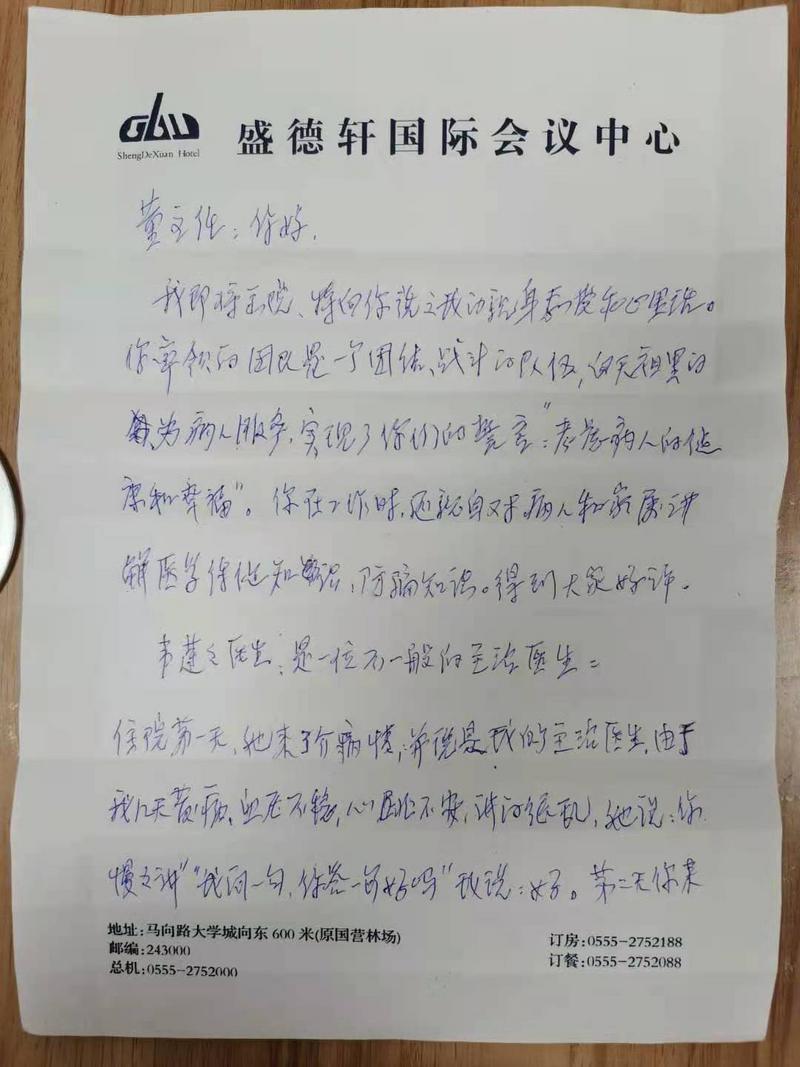 GBU
ShengDeXuan Hotel
盛德轩国际会议中心
董主任：你好，
我即将出院、将向你说之我的亲身感受和心里话。
你率领的团队是一个团结、战斗的队伍，白天夜里的
为病人服务，实现了你们的誓言："一切为病人的健
康和幸福"。你在工作时，还亲自对病人和家属讲
解医学保健知识，防骗知识。得到大家好评。
韦莲之医生：是一位不一般的主治医生：
住院第一天，她来了介病情，并说是我的主治医生，由于
我几天发病，血压不稳，心里不安，讲话很乱，她说：你
慢之讲"我问一句，你答一句好吗"我说：好。第二天你来
地址:马向路大学城向东 600 米(原国营林场)
邮编:243000
总机:0555-2752000
订房:0555-2752188
订餐:0555-2752088